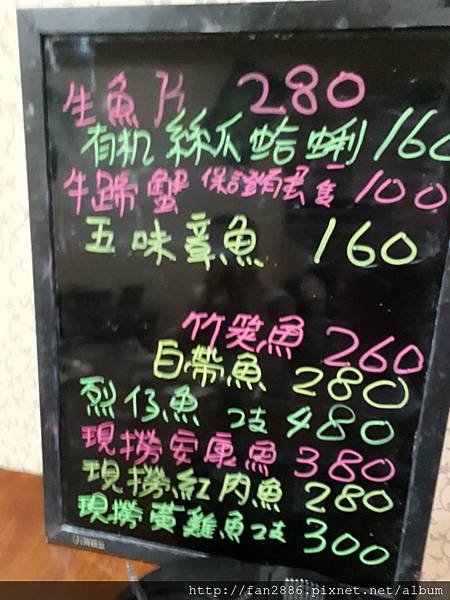 生魚片 280
有机絲瓜蛤蜊 160
牛蹄蟹 保證 食 100
五味章魚 160
竹笑魚 260
白帶魚 280
烈仔魚 2支 480
現撈安康魚 380
現撈紅肉魚 280
現撈黃雞魚2支 300
http://fan2886.pixnet.net/album